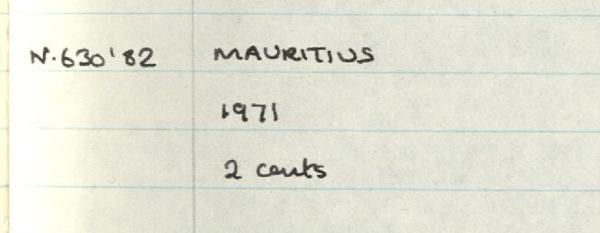 N.630'82 MAURITIUS
1971
2 cents